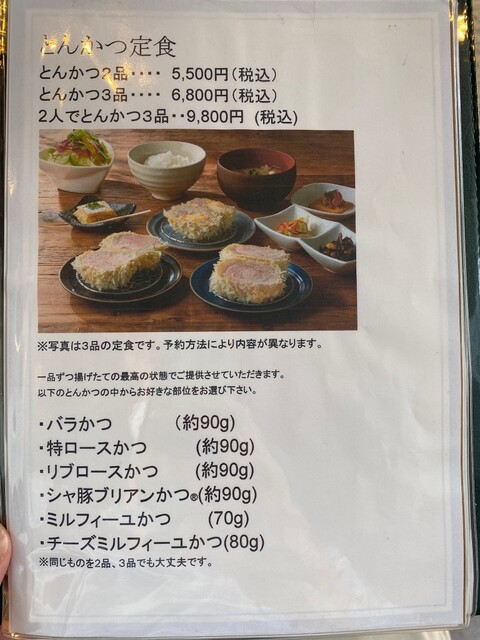 とんかつ定食
とんかつ2品‥‥ 5,500円(税込)
とんかつ3品‥‥ 6,800円(税込)
2人でとんかつ3品‥9,800円 (税込)
※写真は3品の定食です。予約方法により内容が異なります。
一品ずつ揚げたての最高の状態でご提供させていただきます。
以下のとんかつの中からお好きな部位をお選び下さい。
・バラかつ (約90g)
・特ロースかつ (約90g)
・リブロースかつ (約90g)
・シャ豚ブリアンかつ®(約90g)
・ミルフィーユかつ (70g)
・チーズミルフィーユかつ(80g)
※同じものを2品、3品でも大丈夫です。